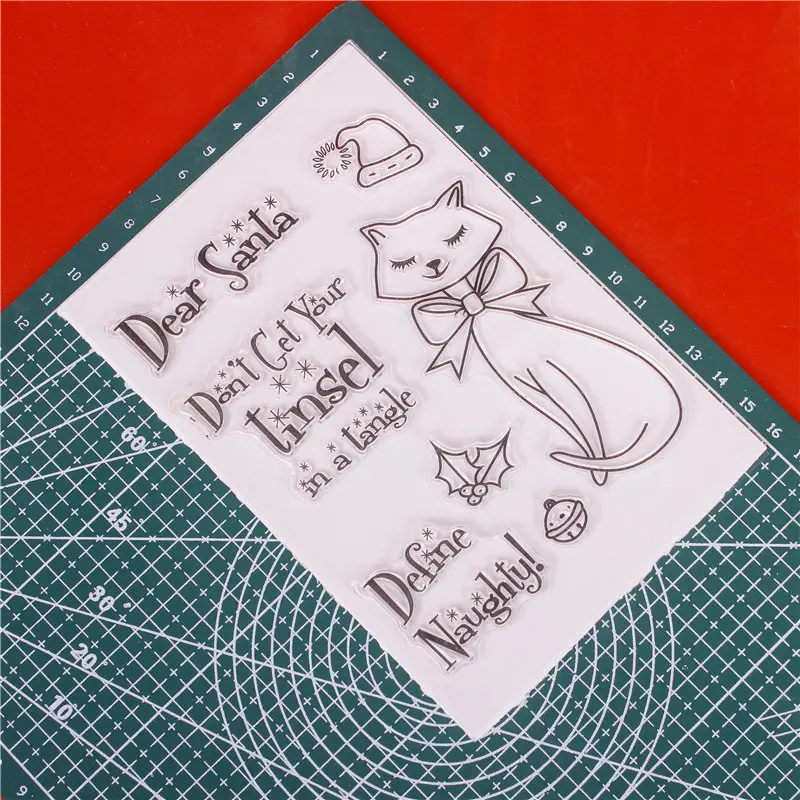 Dear Santa
Don't Get Your
tinsel
in a tangle
Define
Naughty!
1 2 3 4 5 6 7 8 9 10 11 12 13 14 15 16
1 2 3 4 5 6 7 8 9 10 11 12
60°
45°
30°
20°
10°
9